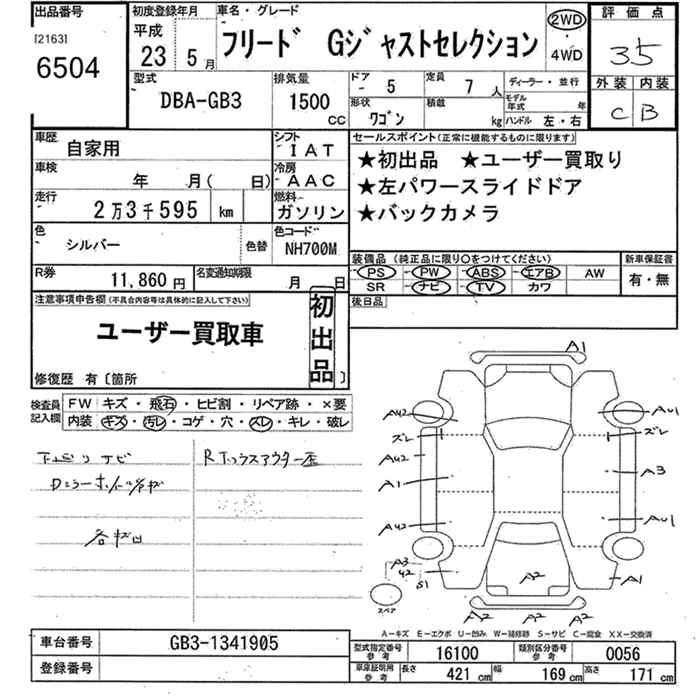 出品番号
[2163]
6504
初度登録年月
平成
23 5月
車名・グレード
フリード Gジャストセレクション
2WD
・
4WD
評価点
3.5
外装 内装
C B
型式
DBA-GB3
排気量
1500
CC
ドア
5
定員
7人
ディーラー・並行
形状
ワゴン
積載
kg
モデル年式
年
ハンドル 左・右
車歴
自家用
シフト
IAT
車検
年 月( 日)
冷房
AAC
走行
2万3千595 km
燃料
ガソリン
色
シルバー
色替
色コード
NH700M
R券
11,860円
名変通知期限
月 日
セールスポイント(正常に機能するものに限ります)
★初出品 ★ユーザー買取り
★左パワースライドドア
★バックカメラ
装備品(純正品に限り○をつけてください)
新車保証書
PS PW ABS エアB AW
SR ナビ TV カワ
有・無
後日品
注意事項申告欄(不具合内容等は具体的に記入して下さい)
ユーザー買取車
初出品
修復歴 有〔箇所 〕
検査員記入欄
FW キズ・飛石・ヒビ割・リペア跡・×要
内装 キズ・汚レ・コゲ・穴・スレ・キレ・破レ
A1
A42
AU1
ズレ
ズレ
A42
A3
A1
A42
AU1
A3
42
S1
A1
A2
スペア
A2
A2
A2
A-キズ E-エクボ U-凹み W-補修跡 S-サビ C-腐食 XX-交換済
車台番号
GB3-1341905
登録番号
型式指定番号
参考
16100
類別区分番号
参考
0056
車庫証明用
参考
長さ 421cm 幅 169cm 高さ 171cm